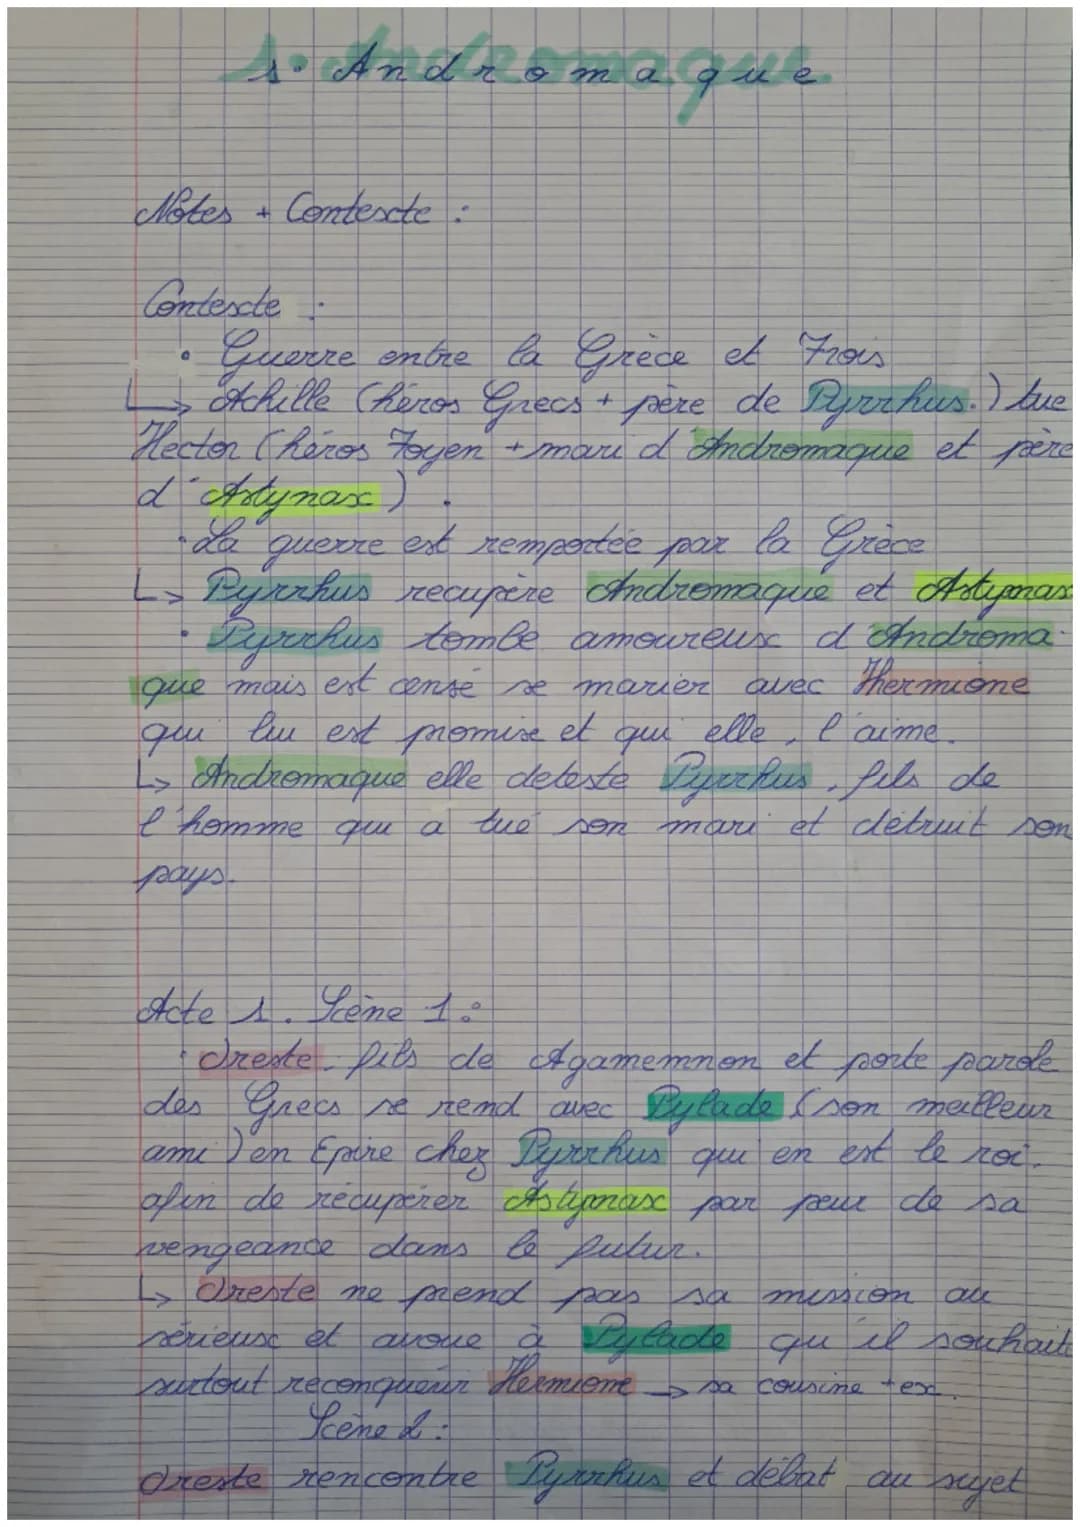 1. Andromaque
Notes + Contexte :
Contexte :
• Guerre entre la Grèce et Trois
↳ Achille (héros Grecs + père de Pyrrhus.) tue
Hector (héros Toyen + mari d'Andromaque et père
d'Astynax).
• La guerre est remportée par la Grèce
↳ Pyrrhus recupère Andromaque et Astynax
• Pyrrhus tombe amoureux d'Androma-
que mais est censé se marier avec Hermione
qui lui est promise et qui elle, l'aime.
↳ Andromaque elle deteste Pyrrhus, fils de
l'homme qui a tué son mari et détruit son
pays.
Acte 1. Scène 1 :
• Oreste, fils de Agamemnon et porte parole
des Grecs se rend avec Pylade (son meilleur
ami) en Epire chez Pyrrhus qui en est le roi.
afin de récupérer Astynax par peur de sa
vengeance dans le futur.
↳ Oreste ne prend pas sa mission au
sérieux et avoue à Pylade qu'il souhaite
surtout reconquérir Hermione → sa cousine + ex.
Scène 2 :
Oreste rencontre Pyrrhus et débat au sujet